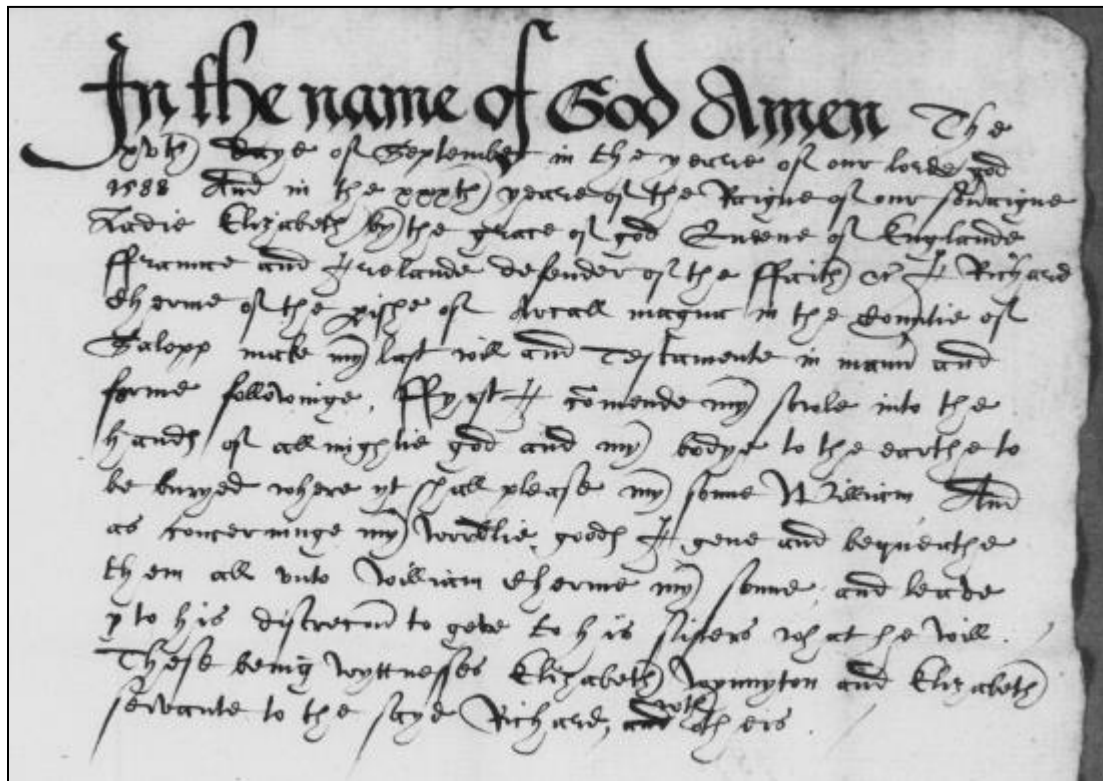 In the name of God Amen The
xvth daye of September in the yeare of our lorde god
1588 And in the xxxth yeare of the Raigne of our sovraigne
Ladie Elizabeth by the grace of god Queene of Englande
ffraunce and Irelande defender of the ffaith &c I Richard
of the pishe of Arcall magna in the Countie of
Salopp make my last will and Testamente in mann and
forme followinge, ffyrst I comende my soule into the
hands of allmightie god and my bodye to the earthe to
be buryed where yt shall please my sonne William And
as concerninge my worldlie goods I geve and bequeathe
them all unto William my sonne, and leave
yt to his discrecon to geve to his sisters what he will.
These being wyttnesses Elizabeth Wynnyton and Elizabeth
servante to the sayd Richard, with others